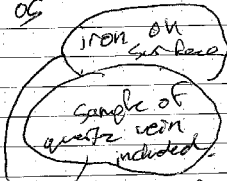 OC
iron on
surface
sample of
quartz vein
included.